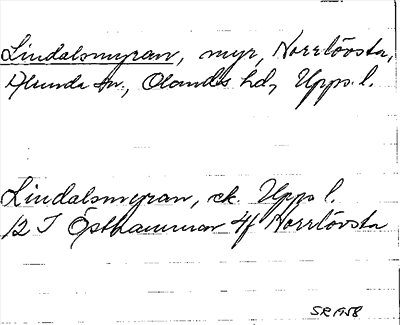 Lindalsmyran, myr, Norrlövsta,
Ålunda sn., Olands hd, Upps. l.
Lindalsmyran, ek. Upps l.
12 I Östhammar 4f Norrlövsta
SR 1958